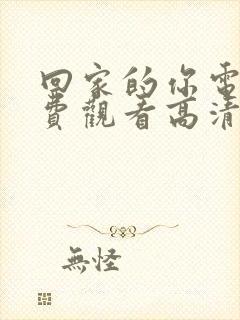 回家的你電
費觀看高清
無怪